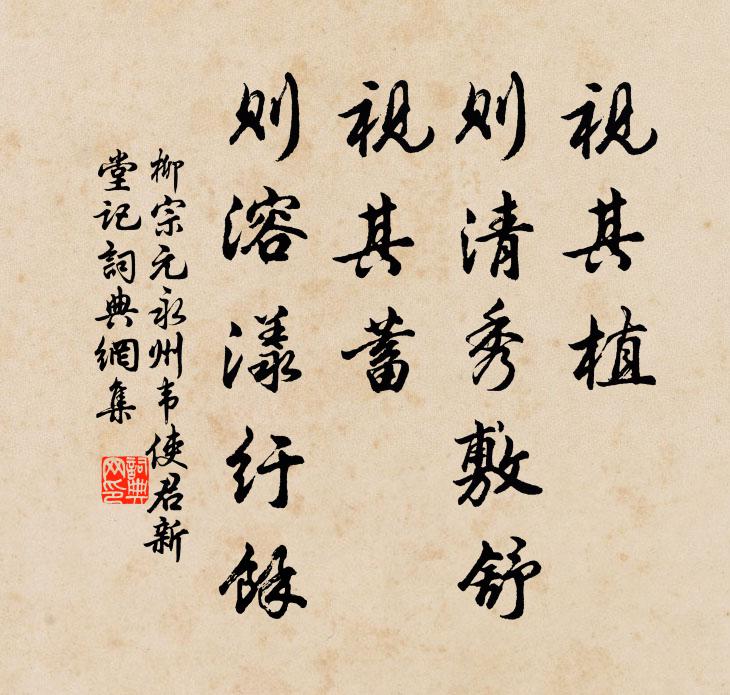 視其植
则清秀敷舒
視其蓄
则溶漾纡餘
柳宗元永州韦使君新
堂记詞典網集
詞典
网印